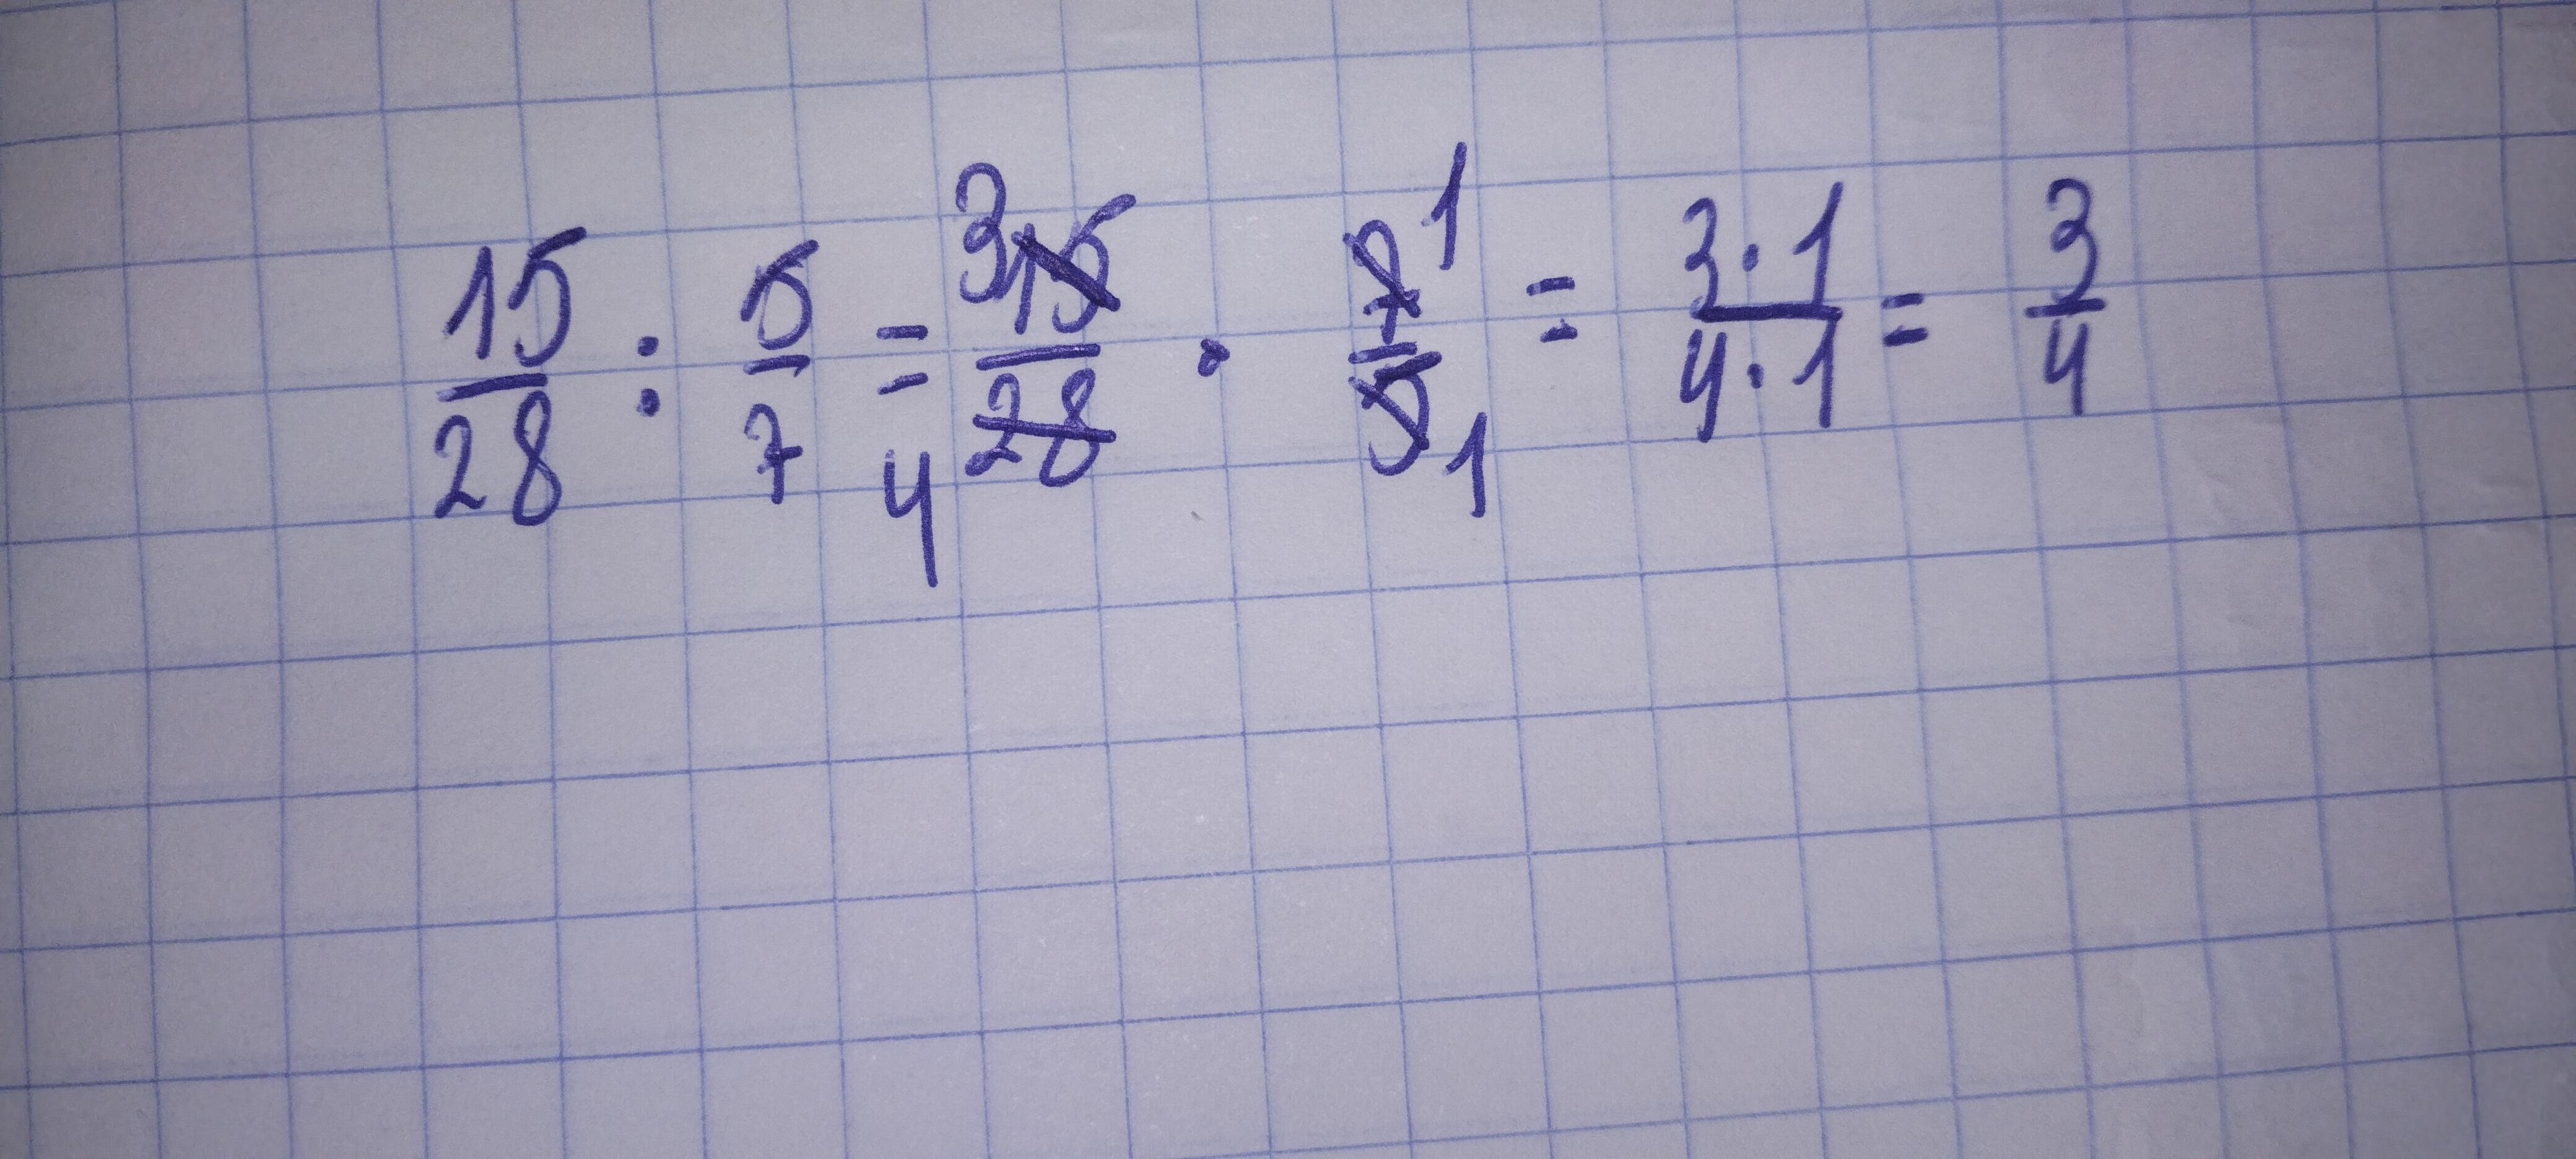 15/28 : 5/7 = 3 15/28 4 · 7/5 1 1 = 3·1/4·1 = 3/4